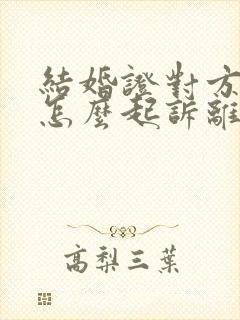 結婚證對方
怎麼起訴離
高梨三葉